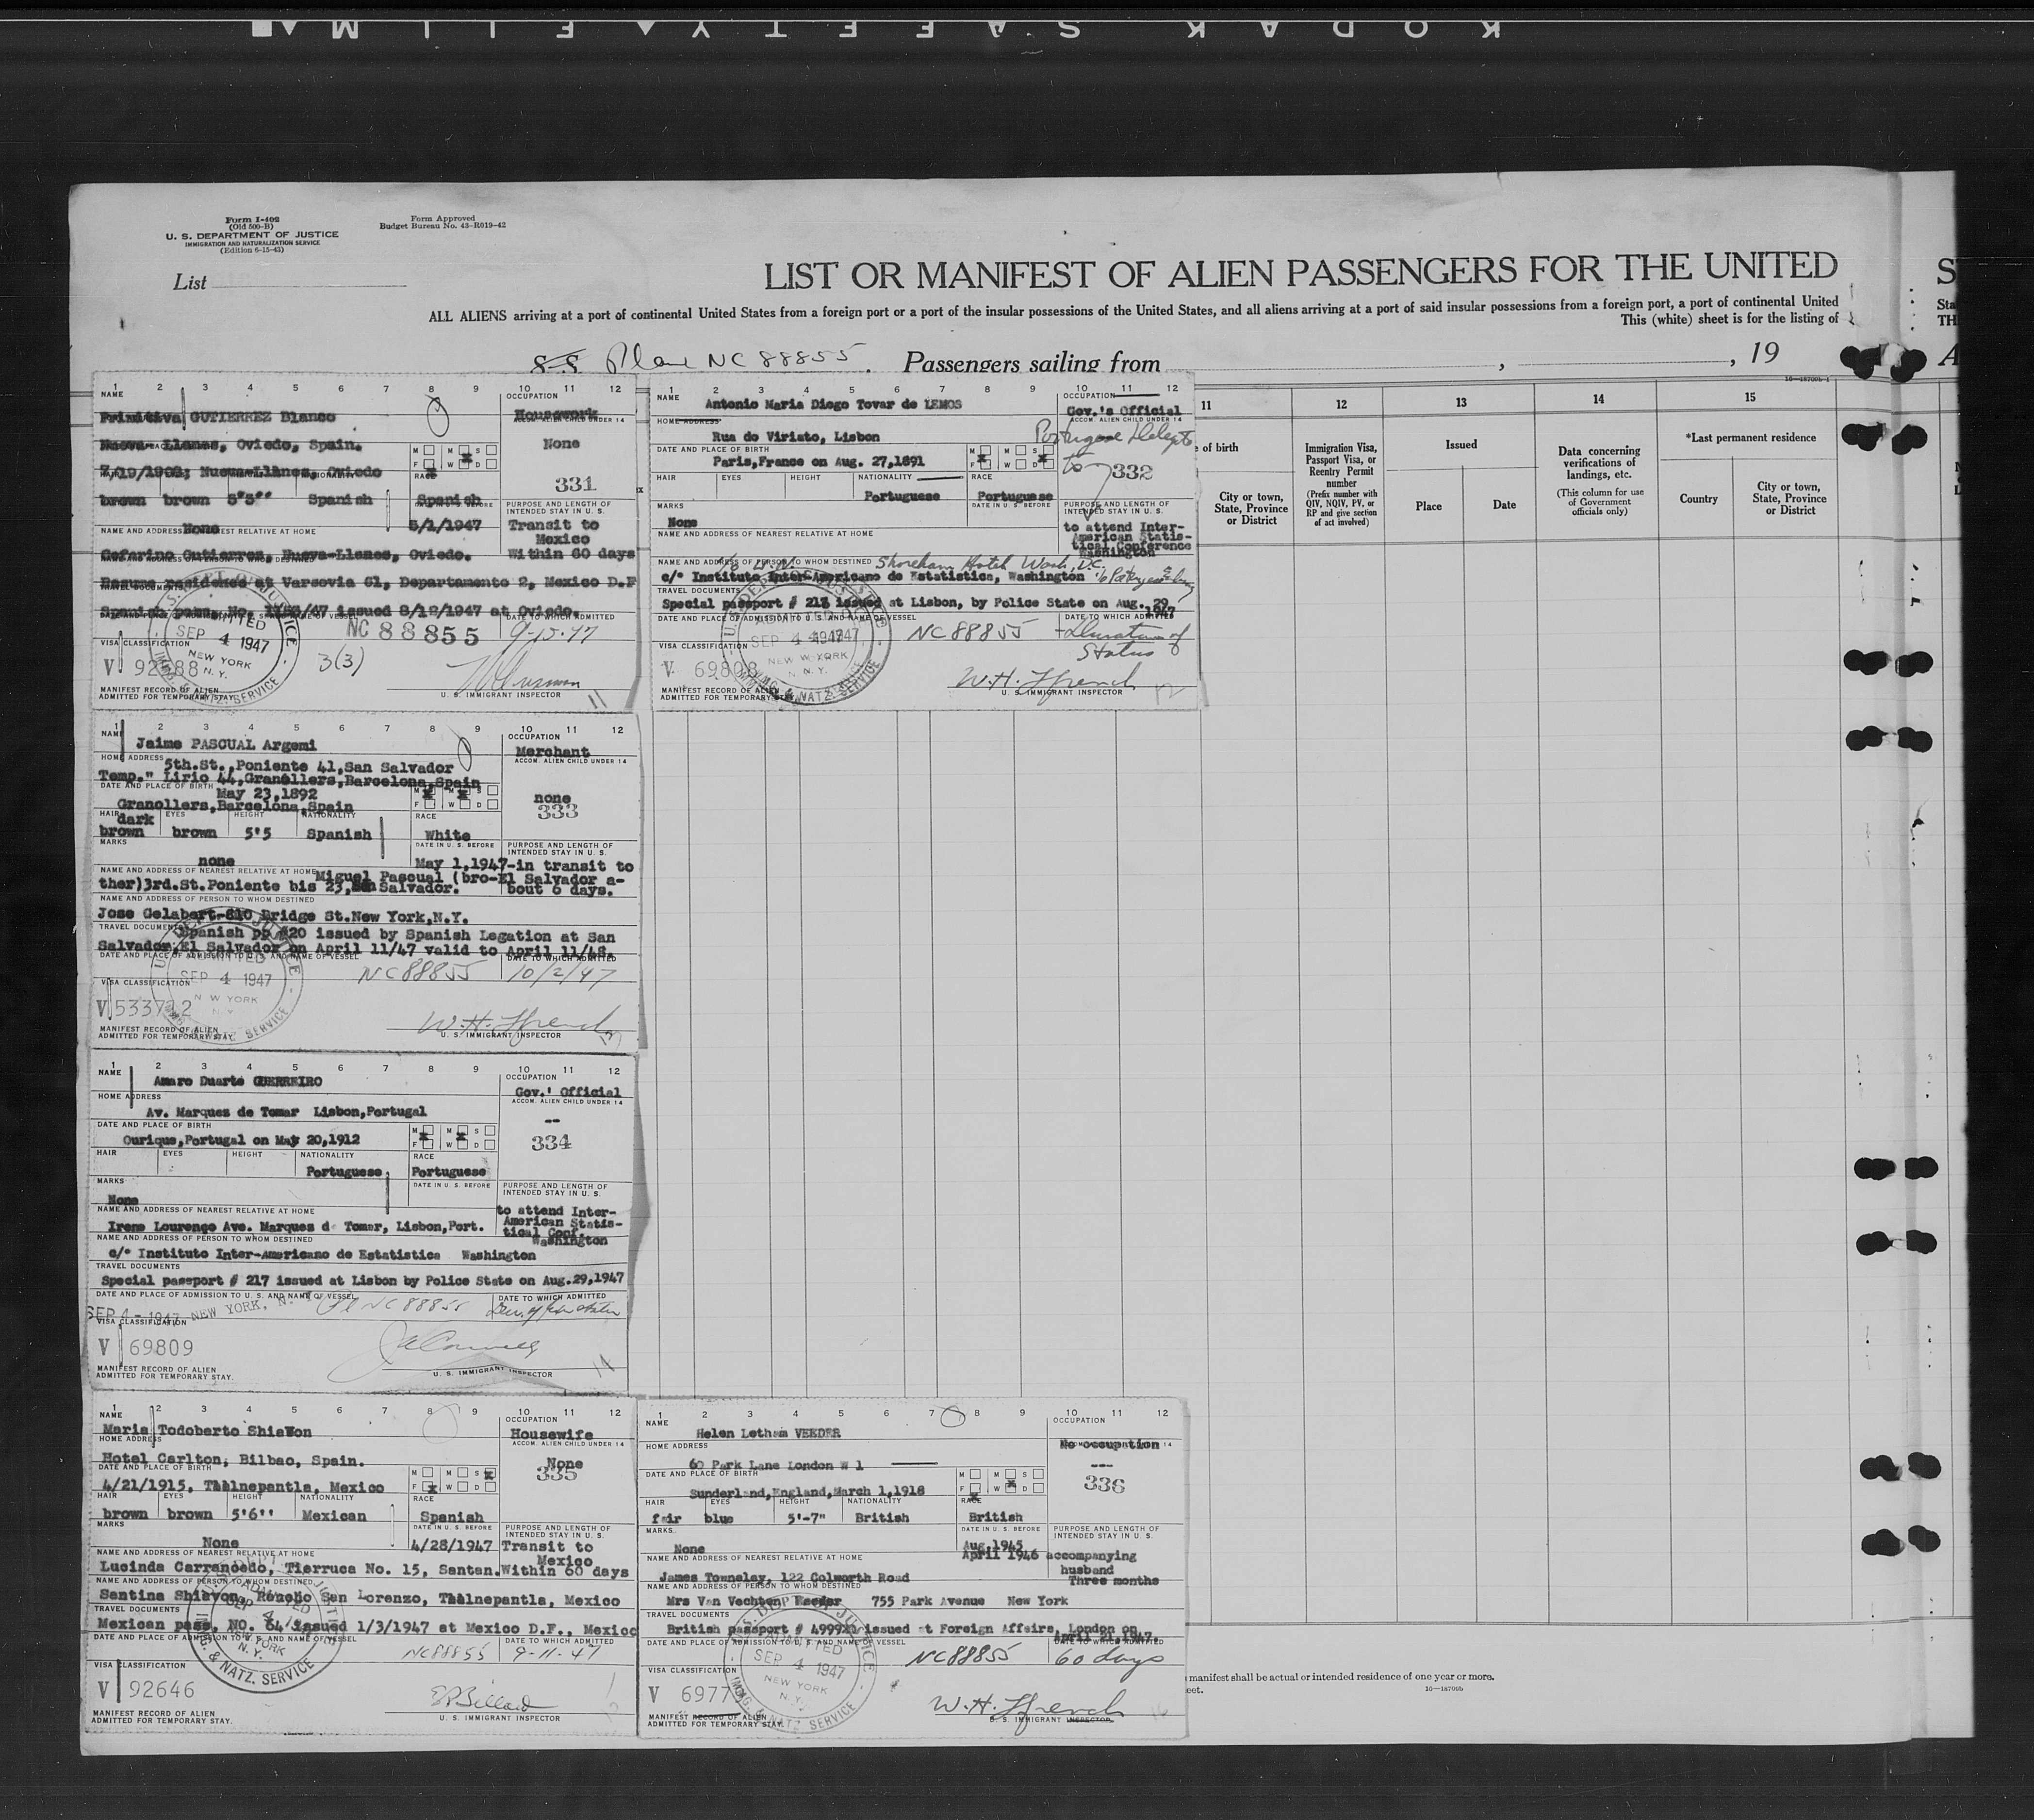 KODAK SAFETY FILM
Form I-402
(Old 500-B)
U. S. DEPARTMENT OF JUSTICE
IMMIGRATION AND NATURALIZATION SERVICE
(Edition 6-15-43)
Form Approved
Budget Bureau No. 43-R019-42
List
LIST OR MANIFEST OF ALIEN PASSENGERS FOR THE UNITED
ALL ALIENS arriving at a port of continental United States from a foreign port or a port of the insular possessions of the United States, and all aliens arriving at a port of said insular possessions from a foreign port, a port of continental United
This (white) sheet is for the listing of
Plane NC 88855. Passengers sailing from , , 19
1 2 3 4 5 6 7 8 9 10 11 12
NAME
OCCUPATION
Primitiva GUTIERREZ Blanco
Housework
ACCOM. ALIEN CHILD UNDER 14
Nueva-Llanes, Oviedo, Spain.
None
Nueva-Llanes, Oviedo
RACE
331
brown brown 5'3'' Spanish Spanish
PURPOSE AND LENGTH OF
INTENDED STAY IN U. S.
None
5/1/1947
Transit to
Mexico
Within 60 days
NAME AND ADDRESS OF NEAREST RELATIVE AT HOME
Ceferino Gutierrez, Nueva-Llanes, Oviedo.
Resume residence at Varsovia 61, Departamento 2, Mexico D.F
issued 8/12/1947 at Oviedo.
NC 88855
SEP 4 1947
NEW YORK
N. Y.
VISA CLASSIFICATION
3(3)
MANIFEST RECORD OF ALIEN
ADMITTED FOR TEMPORARY STAY.
U. S. IMMIGRANT INSPECTOR
1 2 3 4 5 6 7 8 9 10 11 12
NAME
OCCUPATION
Antonio Maria Diogo Tovar de LEMOS
Gov.'s Official
HOME ADDRESS
ACCOM. ALIEN CHILD UNDER 14
Rua do Viriato, Lisbon
DATE AND PLACE OF BIRTH
Paris,France on Aug. 27,1891
332
HAIR EYES HEIGHT NATIONALITY RACE
Portuguese Portuguese
MARKS
DATE IN U. S. BEFORE
PURPOSE AND LENGTH OF
INTENDED STAY IN U. S.
None
to attend Inter-
American Statis-
tical Conference
Washington
NAME AND ADDRESS OF NEAREST RELATIVE AT HOME
NAME AND ADDRESS OF PERSON TO WHOM DESTINED
Shoreham Hotel Wash, D.C.
c/o Instituto Inter-Americano de Estatistica, Washington
TRAVEL DOCUMENTS
Special passport # 213 issued at Lisbon, by Police State on Aug. 29
1947
DATE AND PLACE OF ADMISSION TO U. S. AND NAME OF VESSEL
DATE TO WHICH ADMITTED
NC88855
Duration of
Status
VISA CLASSIFICATION
W. H. Ffrench
MANIFEST RECORD OF ALIEN
ADMITTED FOR TEMPORARY STAY.
U. S. IMMIGRANT INSPECTOR
11 12 13 14 15
of birth
City or town,
State, Province
or District
Immigration Visa,
Passport Visa, or
Reentry Permit
number
(Prefix number with
QIV, NQIV, PV, or
RP and give section
of act involved)
Issued
Place
Date
Data concerning
verifications of
landings, etc.
(This column for use
of Government
officials only)
*Last permanent residence
Country
City or town,
State, Province
or District
1 2 3 4 5 6 7 8 9 10 11 12
NAME
OCCUPATION
Jaime PASCUAL Argemi
Merchant
HOME ADDRESS
ACCOM. ALIEN CHILD UNDER 14
5th.St.,Poniente 41,San Salvador
Temp." Lirio 44,Granollers,Barcelona,Spain
DATE AND PLACE OF BIRTH
May 23,1892
none
Granollers,Barcelona,Spain
333
HAIR EYES HEIGHT NATIONALITY RACE
dark
brown brown 5'5 Spanish White
MARKS
DATE IN U. S. BEFORE
PURPOSE AND LENGTH OF
INTENDED STAY IN U. S.
none
May 1,1947-in transit to
NAME AND ADDRESS OF NEAREST RELATIVE AT HOME
Miguel Pascual (bro-El Salvador a-
ther)3rd.St.Poniente bis 23,San Salvador. bout 6 days.
NAME AND ADDRESS OF PERSON TO WHOM DESTINED
Jose Gelabert-810 Bridge St.New York,N.Y.
TRAVEL DOCUMENTS
Spanish pp #20 issued by Spanish Legation at San
Salvador,El Salvador on April 11/47 valid to April 11/48.
DATE AND PLACE OF ADMISSION TO U. S. AND NAME OF VESSEL
DATE TO WHICH ADMITTED
SEP 4 1947
NC88855
10/2/47
VISA CLASSIFICATION
W. H. Ffrench
MANIFEST RECORD OF ALIEN
ADMITTED FOR TEMPORARY STAY.
U. S. IMMIGRANT INSPECTOR
1 2 3 4 5 6 7 8 9 10 11 12
NAME
OCCUPATION
Amaro Duarte GUERREIRO
Gov.' Official
HOME ADDRESS
ACCOM. ALIEN CHILD UNDER 14
Av. Marques de Tomar Lisbon,Portugal
--
DATE AND PLACE OF BIRTH
Ourique,Portugal on May 20,1912
334
HAIR EYES HEIGHT NATIONALITY RACE
Portuguese Portuguese
MARKS
DATE IN U. S. BEFORE
PURPOSE AND LENGTH OF
INTENDED STAY IN U. S.
None
NAME AND ADDRESS OF NEAREST RELATIVE AT HOME
to attend Inter-
American Statis-
tical Conf.
Washington
Irene Lourenço Ave. Marques de Tomar, Lisbon,Port.
NAME AND ADDRESS OF PERSON TO WHOM DESTINED
c/o Instituto Inter-Americano de Estatistica Washington
TRAVEL DOCUMENTS
Special passport # 217 issued at Lisbon by Police State on Aug.29,1947
DATE AND PLACE OF ADMISSION TO U. S. AND NAME OF VESSEL
DATE TO WHICH ADMITTED
SEP 4 - 1947 NEW YORK, N.
NC88855
VISA CLASSIFICATION
V 69809
MANIFEST RECORD OF ALIEN
ADMITTED FOR TEMPORARY STAY.
U. S. IMMIGRANT INSPECTOR
1 2 3 4 5 6 7 8 9 10 11 12
NAME
OCCUPATION
Maria Todoberto
Housewife
HOME ADDRESS
ACCOM. ALIEN CHILD UNDER 14
Hotel Carlton, Bilbao, Spain.
None
DATE AND PLACE OF BIRTH
335
4/21/1915, Thalnepantla, Mexico
HAIR EYES HEIGHT NATIONALITY RACE
brown brown 5'6'' Mexican Spanish
MARKS
DATE IN U. S. BEFORE
PURPOSE AND LENGTH OF
INTENDED STAY IN U. S.
None
4/28/1947 Transit to
Mexico
NAME AND ADDRESS OF NEAREST RELATIVE AT HOME
Lucinda Carrancedo, Tierruca No. 15, Santan. Within 60 days
NAME AND ADDRESS OF PERSON TO WHOM DESTINED
Santina Shiavon, Rancho San Lorenzo, Thalnepantla, Mexico
TRAVEL DOCUMENTS
Mexican pass. NO. 64 issued 1/3/1947 at Mexico D.F., Mexico
DATE AND PLACE OF ADMISSION TO U. S. AND NAME OF VESSEL
DATE TO WHICH ADMITTED
NC88855
9-11-47
& NATZ. SERVICE
VISA CLASSIFICATION
V 92646
MANIFEST RECORD OF ALIEN
ADMITTED FOR TEMPORARY STAY.
U. S. IMMIGRANT INSPECTOR
1 2 3 4 5 6 7 8 9 10 11 12
NAME
OCCUPATION
Helen Letham VEEDER
HOME ADDRESS
No occupation
60 Park Lane London W 1
---
DATE AND PLACE OF BIRTH
336
Sunderland,England,March 1,1918
HAIR EYES HEIGHT NATIONALITY RACE
fair blue 5'-7" British British
MARKS
DATE IN U. S. BEFORE
PURPOSE AND LENGTH OF
INTENDED STAY IN U. S.
None
Aug 1945
April 1946 accompanying
husband
Three months
NAME AND ADDRESS OF NEAREST RELATIVE AT HOME
James Townsley, 122 Colworth Road
NAME AND ADDRESS OF PERSON TO WHOM DESTINED
Mrs Van Vechten Veeder 755 Park Avenue New York
TRAVEL DOCUMENTS
British passport # issued at Foreign Affairs, London on
April 21,1947
DATE AND PLACE OF ADMISSION TO U. S. AND NAME OF VESSEL
DATE TO WHICH ADMITTED
SEP 4 1947
NEW YORK
N. Y.
NC88855
60 days
VISA CLASSIFICATION
W. H. Ffrench
MANIFEST RECORD OF ALIEN
ADMITTED FOR TEMPORARY STAY.
U. S. IMMIGRANT INSPECTOR
manifest shall be actual or intended residence of one year or more.
eet.